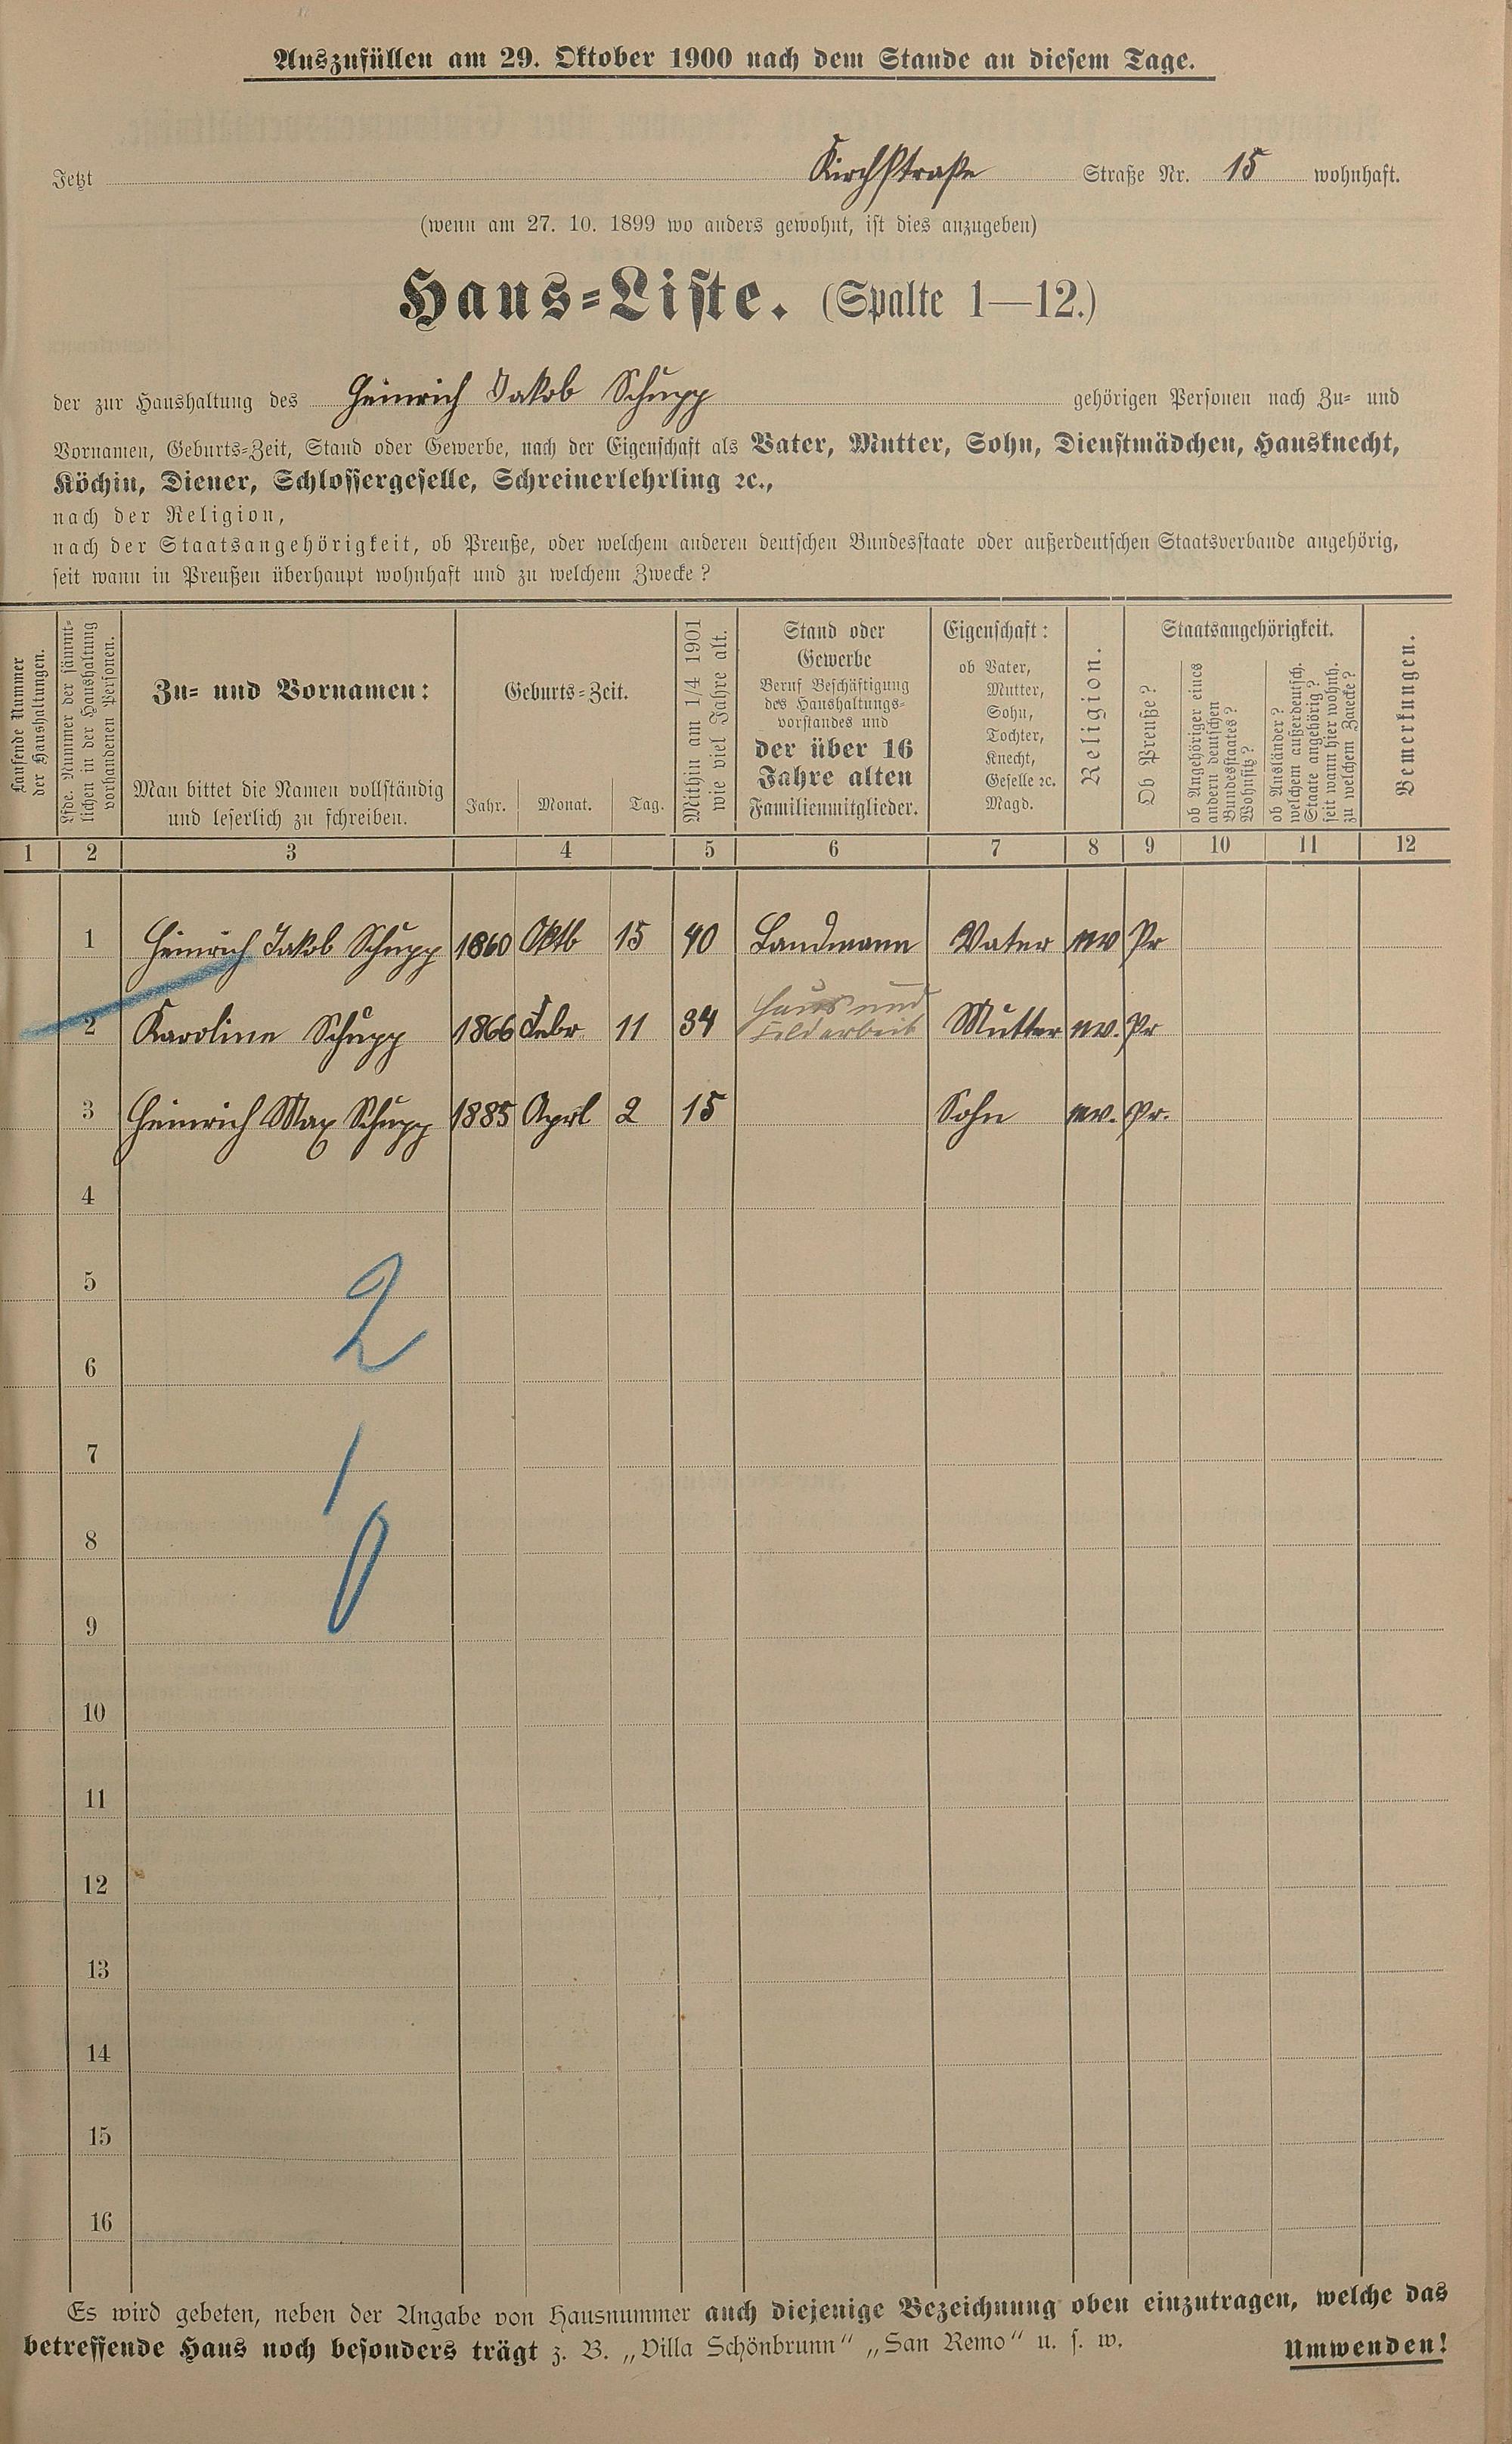 Auszufüllen am 29. Oktober 1900 nach dem Stande an diesem Tage.
Jetzt Kirchstraße Straße Nr. 15 wohnhaft.
(wenn am 27. 10. 1899 wo anders gewohnt, ist dies anzugeben)
Haus-Liste. (Spalte 1—12.)
der zur Haushaltung des Heinrich Jakob Schupp gehörigen Personen nach Zu- und
Vornamen, Geburts-Zeit, Stand oder Gewerbe, nach der Eigenschaft als Vater, Mutter, Sohn, Dienstmädchen, Hausknecht,
Köchin, Diener, Schlossergeselle, Schreinerlehrling ꝛc.,
nach der Religion,
nach der Staatsangehörigkeit, ob Preuße, oder welchem anderen deutschen Bundesstaate oder außerdeutschen Staatsverbande angehörig,
seit wann in Preußen überhaupt wohnhaft und zu welchem Zwecke?
Laufende Nummer
der Haushaltungen.
Lfde. Nummer der sämmt-
lichen in der Haushaltung
vorhandenen Personen.
Zu- und Vornamen:
Man bittet die Namen vollständig
und leserlich zu schreiben.
Geburts-Zeit.
Jahr. Monat. Tag.
Mithin am 1/4 1901
wie viel Jahre alt.
Stand oder
Gewerbe
Beruf Beschäftigung
des Haushaltungs-
vorstandes und
der über 16
Jahre alten
Familienmitglieder.
Eigenschaft:
ob Vater,
Mutter,
Sohn,
Tochter,
Knecht,
Geselle ꝛc.
Magd.
Religion.
Staatsangehörigkeit.
Ob Preuße?
ob Angehöriger eines
andern deutschen
Bundesstaates?
Wohnsitz?
ob Ausländer?
welchem außerdeutsch.
Staate angehörig?
seit wann hier wohnh.
zu welchem Zwecke?
Bemerkungen.
1 2 3 4 5 6 7 8 9 10 11 12
1 Heinrich Jakob Schupp 1860 Oktb 15 40 Landmann Vater ev Pr
2 Karoline Schupp 1866 Febr. 11 34 Haus und Feldarbeit Mutter ev. Pr
3 Heinrich Max Schupp 1885 Aprl 2 15 Sohn ev. Pr.
4
5
2
6
7
1
8
0
9
10
11
12
13
14
15
16
Es wird gebeten, neben der Angabe von Hausnummer auch diejenige Bezeichnung oben einzutragen, welche das
betreffende Haus noch besonders trägt z. B. „Villa Schönbrunn“ „San Remo“ u. s. w. Umwenden!